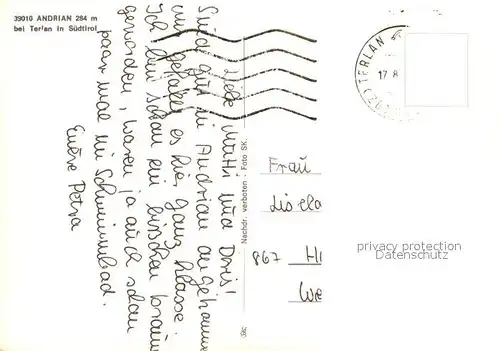 39010 ANDRIAN 284 m
bei Terlan in Südtirol
Liebe Mutti und Doris!
Sind gut in Andrian angekommen
und gefällt es hier ganz klasse.
Ich bin schon ein bisschen braun
geworden, waren ja auch schon
paar mal im Schwimmbad.
Eure Petra
Nachdr. verboten - Foto SK.
TERLAN
17.8
Frau
867
privacy protection
Datenschutz